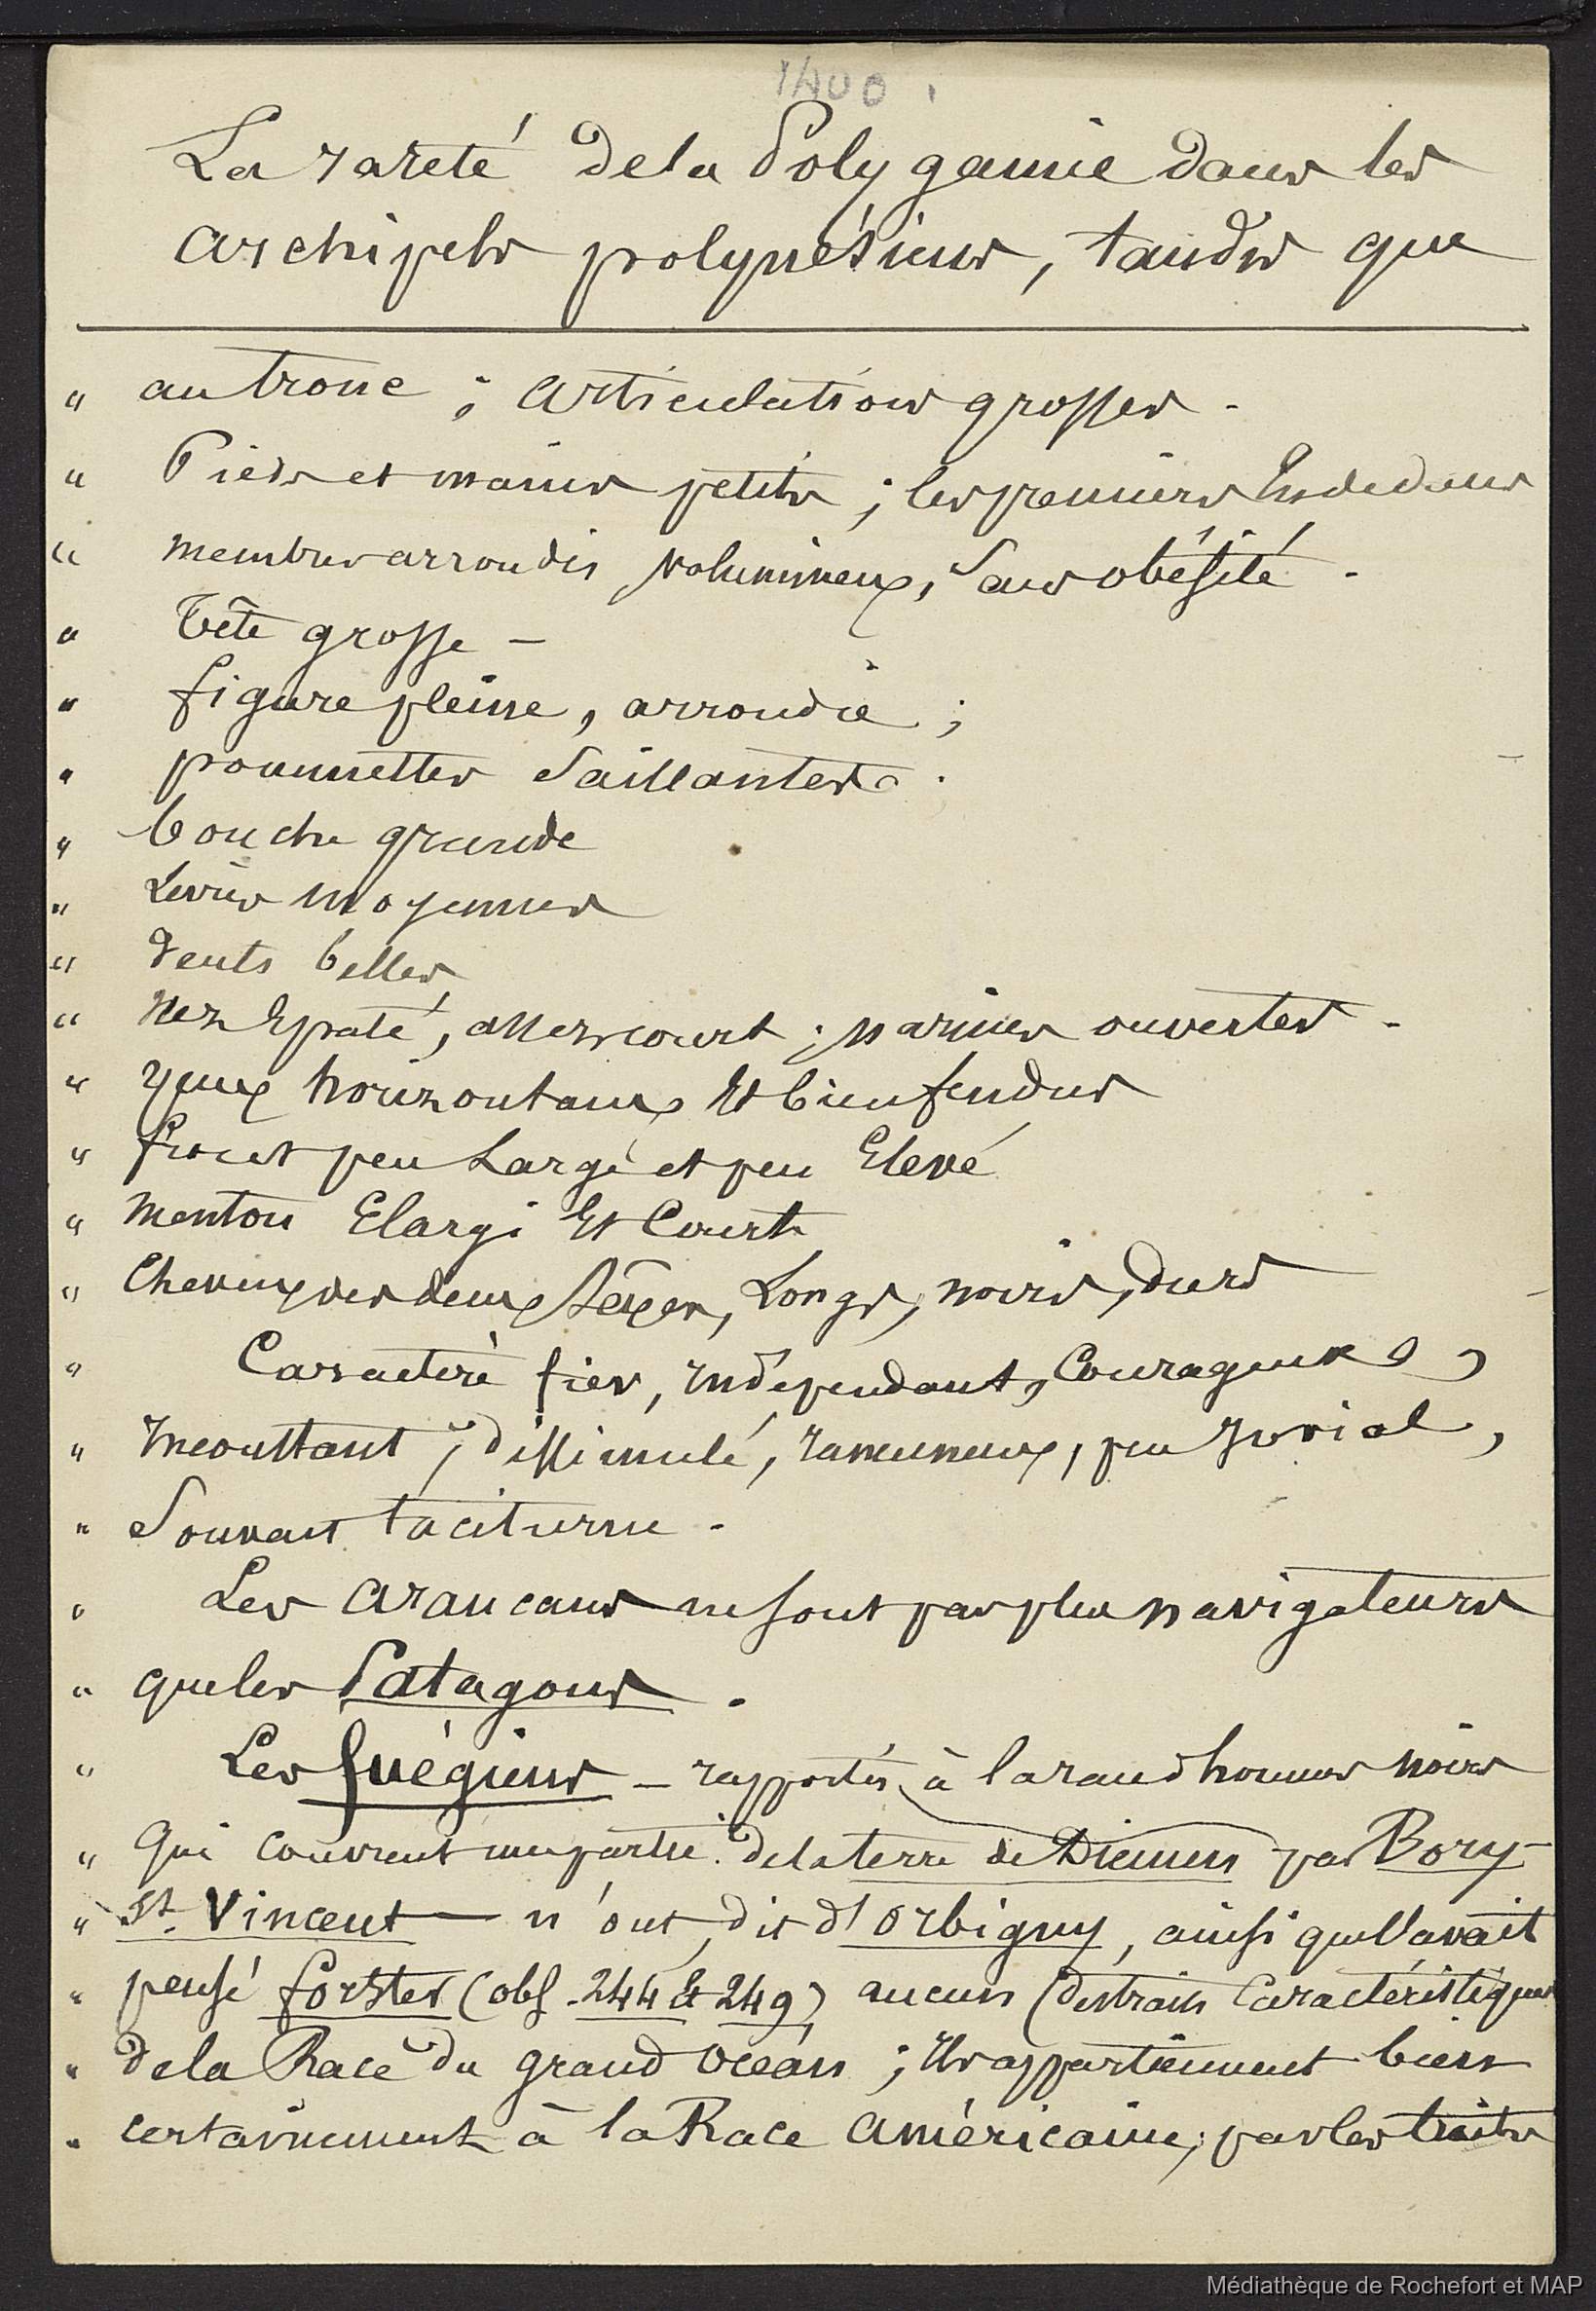 1400.
La rareté de la Polygamie dans les
archipels polynésiens, tandis que
" au tronc ; articulations grosses -
" Pieds et mains petits ; les premiers En dedans
" membres arrondis volumineux, Sans obésité -
" Tête grosse -
" figure pleine, arrondie ;
" pommettes Saillantes .
" bouche grande
" Levres moyennes
" dents belles
" Nez Epaté, assez court ; narines ouvertes -
" yeux horizontaux Et bien fendus
" front peu Large et peu Elevé
" menton Elargi Et Court
" Cheveux des deux Sexes, Longs, noirs, durs
" Caractère fier, indépendant, Courageux,
" Inconstant, dissimulé, rancuneux, peu Jovial,
" Souvent taciturne -
" Les araucans ne sont pas plus navigateurs
" que les Patagons .
" Les fuégiens - rapportés à la race d'hommes noirs
" Qui couvrent une partie de la terre de Diemen par Bory
" St. Vincent — n'ont, dit d'Orbigny, ainsi que l'avait
" pensé forster (obs. 244 et 249) aucun des traits Caractéristiques
" de la Race du grand océan ; Ils appartiennent bien
" certainement à la Race américaine, par les traits
Médiathèque de Rochefort et MAP